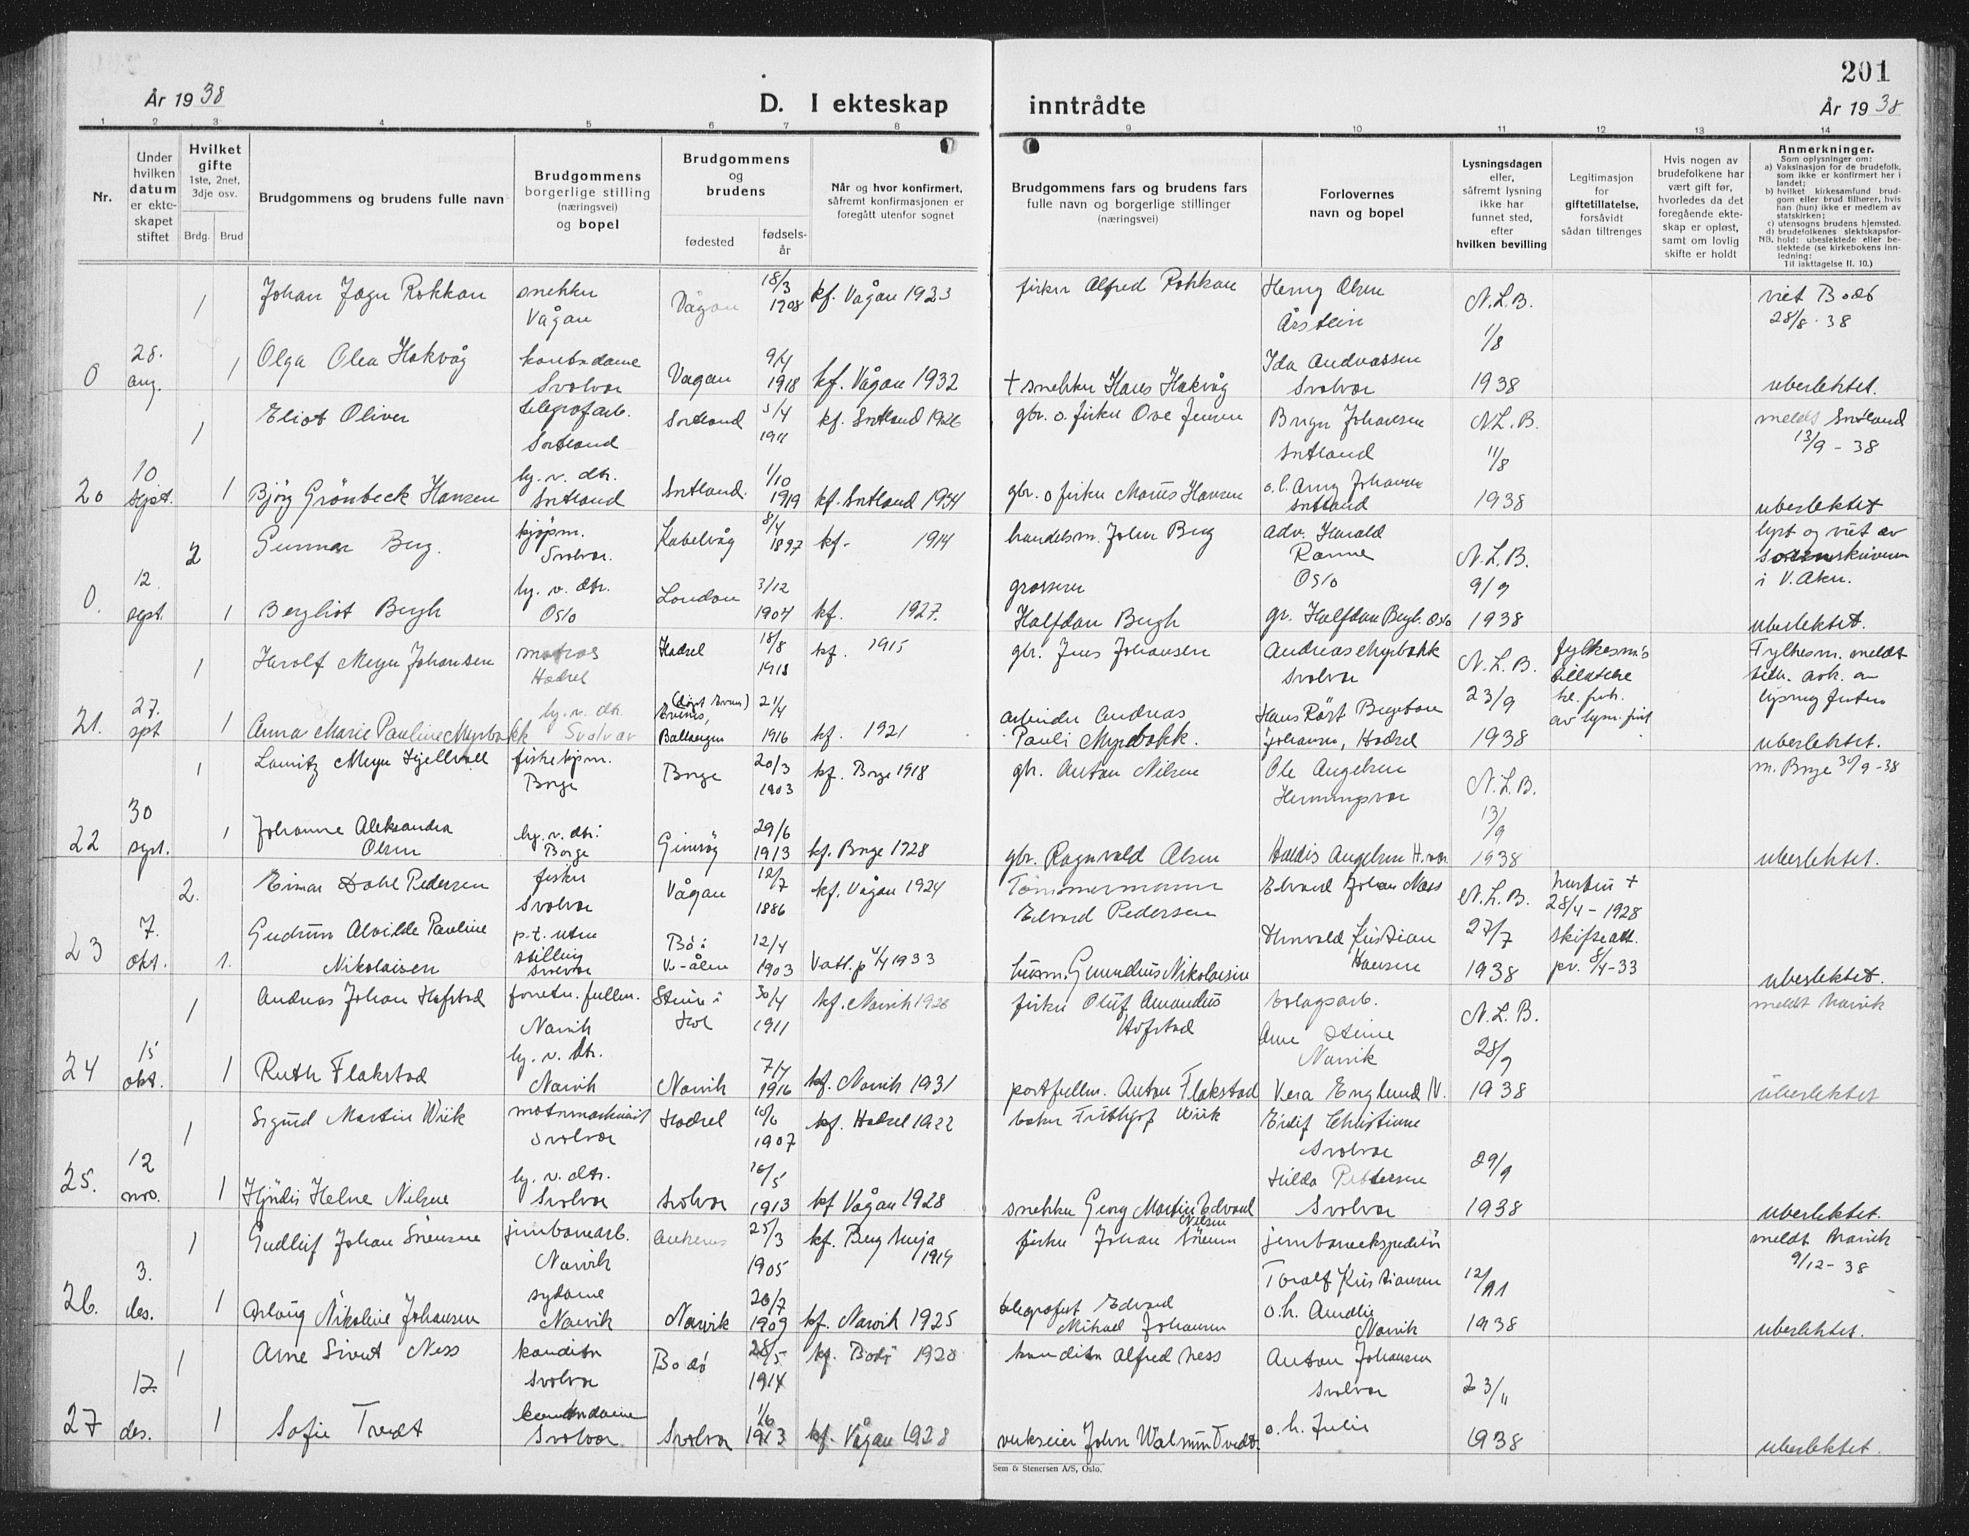 201
År 19 38
D. I ekteskap
inntrådte
År 19 38
1 2 3 4 5 6 7 8 9 10 11 12 13 14
Nr.
Under hvilken datum er ekte-skapet stiftet
Hvilket gifte
1ste, 2net, 3dje osv.
Brdg. Brud
Brudgommens og brudens fulle navn
Brudgommens
borgerlige stilling
(næringsvei)
og bopel
Brudgommens
og
brudens
fødested
fødsels-
år
Når og hvor konfirmert,
såfremt konfirmasjonen er
foregått utenfor sognet
Brudgommens fars og brudens fars
fulle navn og borgerlige stillinger
(næringsvei)
Forlovernes
navn og bopel
Lysningsdagen
eller,
såfremt lysning
ikke har
funnet sted,
efter
hvilken bevilling
Legitimasjon
for
giftetillatelse,
forsåvidt
sådan tiltrenges
Hvis nogen av
brudefolkene har
vært gift før,
hvorledes da det
foregående ekte-
skap er opløst,
samt om lovlig
skifte er holdt
Anmerkninger.
Som oplysninger om:
a) Vaksinasjon for de brudefolk,
som ikke er konfirmert her i
landet;
b) hvilket kirkesamfund brud-
gom eller brud tilhører, hvis
han (hun) ikke er medlem av
statskirken;
c) utensogns brudens hjemsted.
d) brudefolkenes slektskapsfor-
NB. hold: ubeslektede eller be-
slektede (se kirkebokens inn-
ledning:
Til iakttagelse II. 10.)
1 Johan Rokkan Vågan Vågan 18/3 1908 kf. Vågan 1923 Alfred Rokkan Olsen N.L.B. 1/8 viet Bodö 28/8-38
0 28. aug. 1 Olga Olea Hakvåg Svolvær Vågan 9/4 1918 kf. Vågan 1932 + Hans Hakvåg Ida Svolvær 1938 ubeslektet.
1 Eliot Oliver telegrafarb. Sortland Sortland 3/4 1911 kf. Sortland 1926 gbr. o. fisker Ove Jensen Johansen Sortland N.L.B. 11/8 meldt Sortland 13/9-38
20 10 sept. 1 Bjørg Grönbeck Hansen hj. v. dtr. Sortland Sortland. 1/10 1919 kf. Sortland 1934 gbr. o fisker Hansen Johansen Sortland 1938 ubeslektet
2 Gunnar Berg. kjøpm. Svolvær. Kabelvåg 8/4 1897 kf. 1914 handelsm. John Berg adv. Harald Oslo N.L.B. 9/9 lyst og viet av sorenskriveren i V. Aker.
0. 12. sept. 1 Bergliot Bergh hj. v. dtr. Oslo London 3/12 1904 kf. 1927. grosserer Halfdan Bergh gr. Halfdan Bergh Oslo 1938 ubeslektet.
1 Harolf Meyer Johansen matros Hadsel Hadsel 18/8 1913 kf. 1915 gbr. Jens Johansen Andreas Myrbakk Svolvær N.L.B. 23/9 fylkesm's tillatelse Fylkesm. meldt
21. 27. sept 1 Anna Marie Pauline Myrbakk hj. v. dtr. Svolvær Ballangen 21/4 1916 kf. 1921 arbeider Andreas Pauli Myrbakk. Hans Johansen, Hadsel 1938 ubeslektet.
1 Meyer Kjellvoll fiskekjøpm. Borge Borge 20/3 1903 kf. Borge 1918 gbr. Anton Nilsen Ole Angelsen Henningsvær N.L.B. 13/9 m. Borge 30/9-38
22 30 sept. 1 Johanne Aleksandra Olsen hj. v. dtr. Borge Gimsøy 29/6 1913 kf. Borge 1928 gbr. Ragnvald Olsen Haldis Angelsen H.vær 1938 ubeslektet.
2. Einar Dahl Pedersen fisker Svolvær Vågan 12/7 1886 kf. Vågan 1924 Tömmermann Edvard Pedersen Edvard Johan Næss N.L.B. 27/7 hustru + 28/4-1928 skifteatt. pr. 8/4-33
23 7. okt. 1. Gudrun Alvilde Pauline Nikolaisen p.t. uten stilling Svolvær Bö i V-ålen 12/4 1903 4/4 1933 Nikolaisen Kristian Hansen 1938 ubeslektet.
1 Andreas Johan Hofstad Narvik Steine i Hol 30/4 1911 kf. Narvik 1926 fisker Oluf Amandus Hofstad bolagsarb. Arne Steine Narvik N.L.B. 28/9 meldt Narvik
24 15 okt. 1 Ruth Flakstad hj. v. dtr. Narvik Narvik 7/4 1916 kf. Narvik 1931 postfullm. Anton Flakstad Vera Englund N. 1938 ubeslektet
1 Sigurd Martin Wiik motormaskinist Svolvær Hadsel 1907 kf. Hadsel 1922 baker Wiik Christiane Svolvær 29/9
25. 12 nov. 1 Hjördis Helene Nilsen hj. v. dtr. Svolvær Svolvær 1913 kf Vågan 1928 snekker Georg Martin Edvard Nilsen Hilda Pettersen Svolvær 1938 ubeslektet.
1 Gudleif Johan Sörensen jernbanearb. Narvik Ankenes 25/3 1905 kf. Berg Senja 1919 fisker Johan Sörensen jernbaneekspeditör Toralf Kristiansen 12/11 meldt Narvik 9/12-38
26. 3. des. 1 Aslaug Nikoline Johansen sydame Narvik Narvik 20/7 1909 kf. Narvik 1925 telegrafist Edvard Mikael Johansen o.h. Amelie Narvik 1938 ubeslektet.
1 Arne Sivert Ness konditor Svolvær Bodö 28/5 1914 kf. Bodö 1920 konditor Alfred Ness Anton Johansen Svolvær 23/11
27 17. des. 1 Sofie Tvedt kontordame Svolvær. Svolvær 1/6 1913 kf. Vågan 1928 verkseier John Tvedt. o.h. Julie 1938 ubeslektet.
Sem & Stenersen A/S, Oslo.